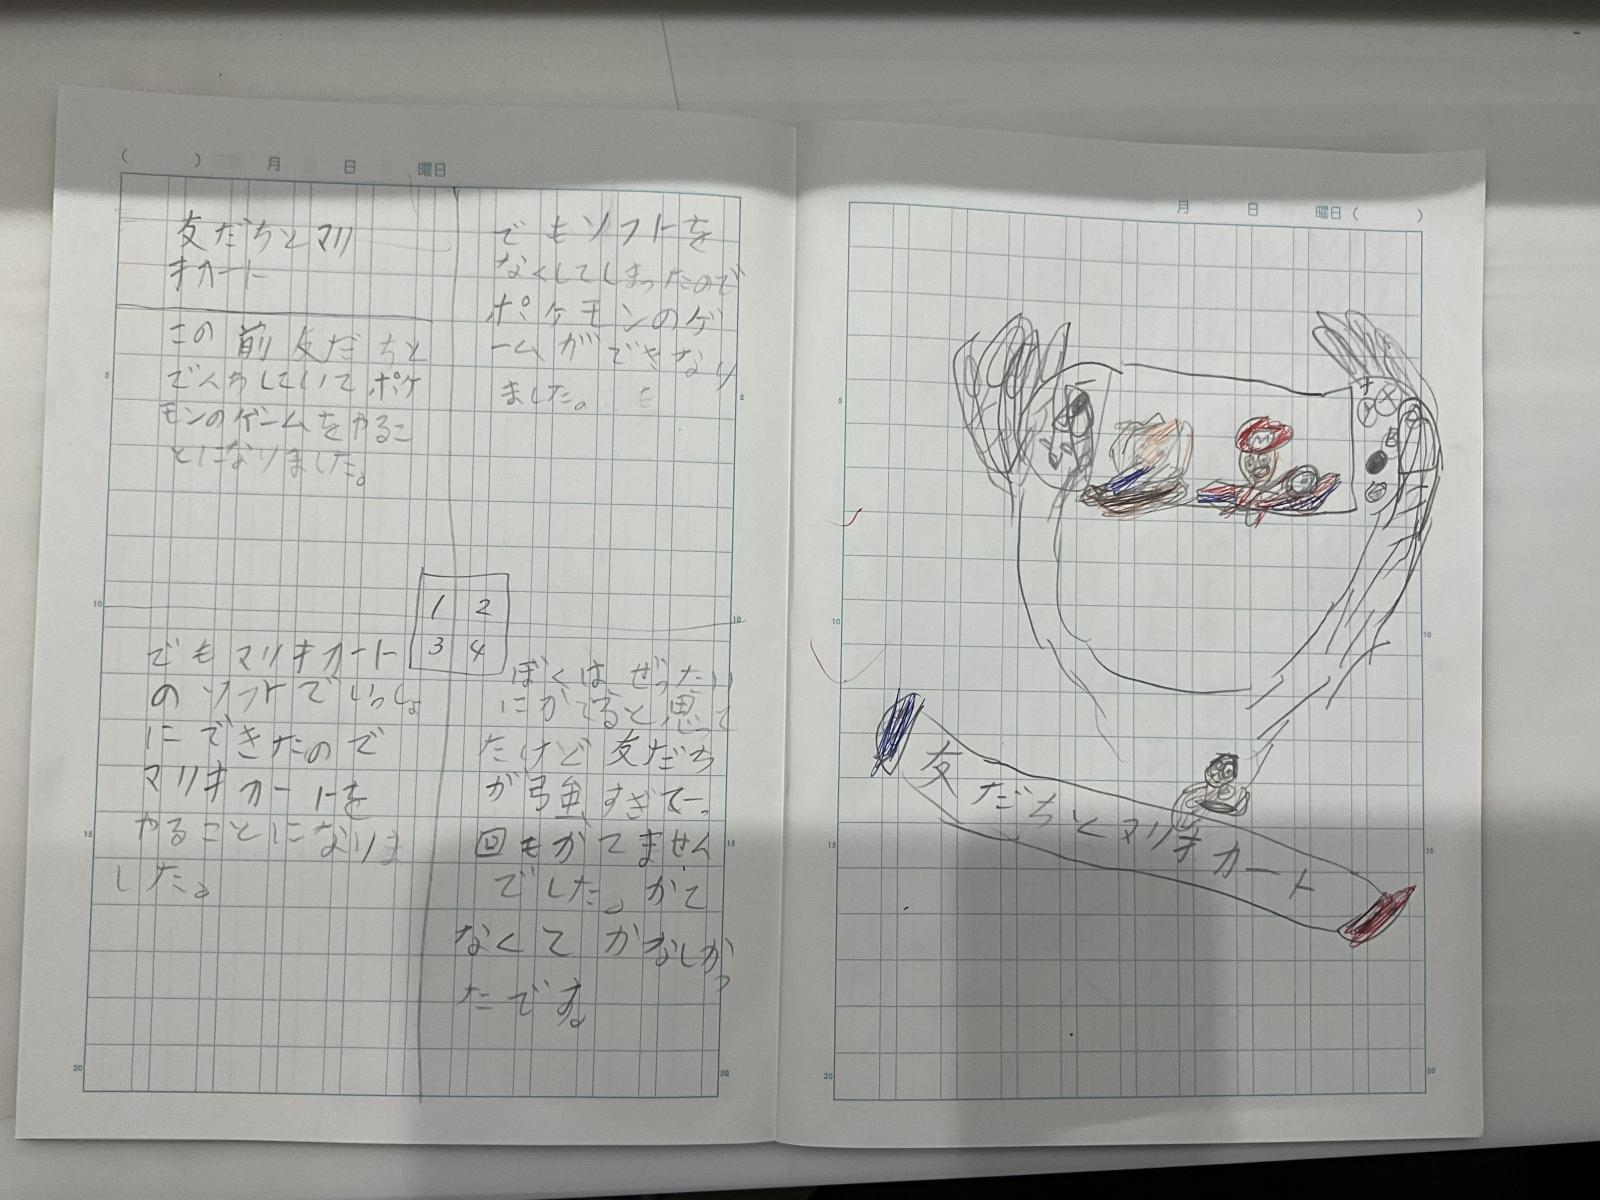 ( ) 月 日 曜日
友だちとマリ
オカート
この前友だちと
でんわしていてポケ
モンのゲームをやるこ
とになりました。
でもソフトを
なくしてしまったので
ポケモンのゲ
ームができなり
ました。
1 2
3 4
でもマリオカート
のソフトでいっしょ
にできたので
マリオカートを
やることになりま
した。
ぼくは、ぜったい
にかてると思って
たけど友だち
が強すぎて一
回もかてません
でした。かて
なくてかなしかっ
たです。
5
10
15
20
5
10
15
20
月 日 曜日 ( )
M
友だちとマリオカート
5
10
15
20
10
15
20